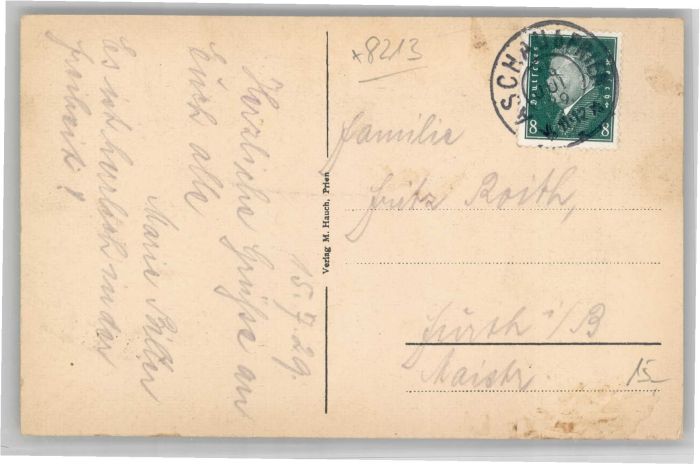 15.7.29.
Herzliche Grüße an
Euch alle
Marie Ritter
Es ist herrlich in der
freiheit!
Verlag M. Hauch, Prien
*8213
ASCHAU
Deutsches Reich
8 8
Familie
Fritz Roith,
Fürth i/B
Maistr.
15-